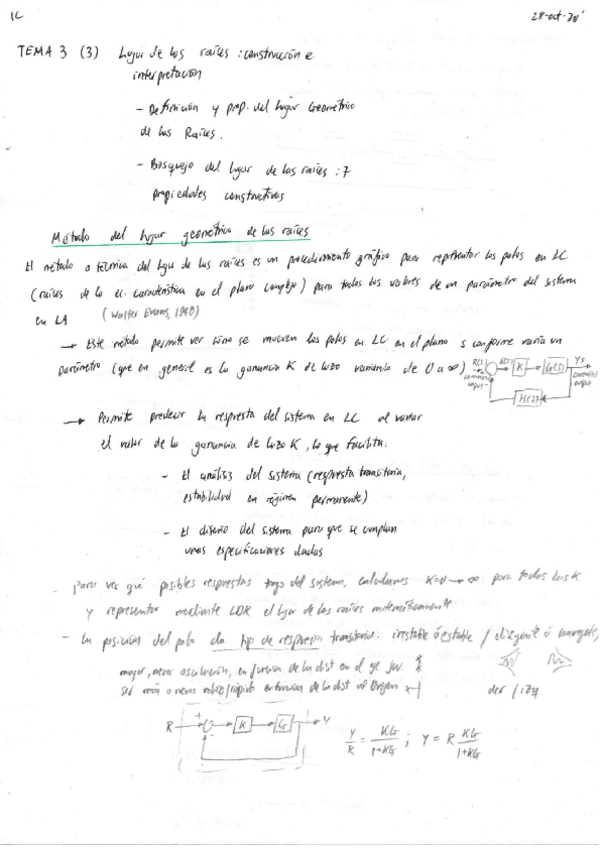 IC 28-oct-20
TEMA 3 (3) Lugar de las raíces: construcción e
interpretación
- Definición y prop. del lugar Geométrico
de las Raíces.
- Bosquejo del lugar de las raíces: 7
propiedades constructivas
Método del lugar geométrico de las raíces
El método o técnica del lugar de las raíces es un procedimiento gráfico para representar los polos en LC
(raíces de la ec. característica en el plano complejo) para todos los valores de un parámetro del sistema
en LA (Walter Evans, 1948)
→ Este método permite ver cómo se mueven los polos en LC en el plano s conforme varía un
parámetro (que en general es la ganancia K de lazo variando de 0 a ∞)
R(s) E(s) K G(s) Y(s)
command input controlled output
H(s)
→ Permite predecir la respuesta del sistema en LC al variar
el valor de la ganancia de lazo K, lo que facilita:
- El análisis del sistema (respuesta transitoria,
estabilidad en régimen permanente)
- El diseño del sistema para que se cumplan
unas especificaciones dadas
- para ver qué posibles respuestas tengo del sistema, calculamos K=0 → ∞ para todos los K
y representar mediante LDR el lugar de las raíces matemáticamente
- La posición del polo da tipo de respuesta transitoria. inestable ó estable / divergente ó convergente,
mayor, menor oscilación, en función de la dist en el eje jw.
ser más o menos rápido en función de la dist al Origen der / izq
R + - K G Y
Y/R = KG/1+KG ; Y = R KG/1+KG